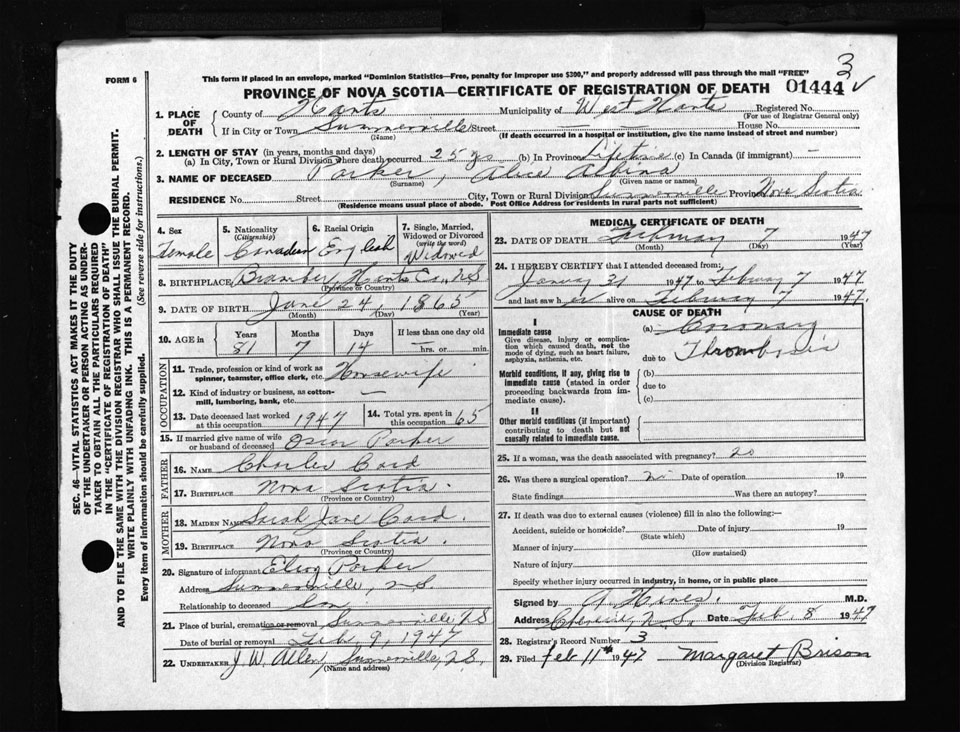 3
This form if placed in an envelope, marked "Dominion Statistics—Free, penalty for improper use $300," and properly addressed will pass through the mail "FREE"
FORM 6
PROVINCE OF NOVA SCOTIA—CERTIFICATE OF REGISTRATION OF DEATH 01444
1. PLACE OF DEATH County of Hants Municipality of West Hants Registered No.
(For use of Registrar General only)
If in City or Town Summerville Street House No.
(Name) (If death occurred in a hospital or institution, give the name instead of street and number)
2. LENGTH OF STAY (in years, months and days)
(a) In City, Town or Rural Division where death occurred 25 yrs (b) In Province Lifetime (c) In Canada (if immigrant) —
3. NAME OF DECEASED Parker, Alice Albina
(Surname) (Given name or names)
RESIDENCE No. Street City, Town or Rural Division Summerville Province Nova Scotia
(Residence means usual place of abode. Post Office Address for residents in rural parts not sufficient)
4. Sex Female
5. Nationality (Citizenship) Canadian
6. Racial Origin English
7. Single, Married, Widowed or Divorced (write the word) Widowed
8. BIRTHPLACE Bramber, Hants Co., N.S
(Province or Country)
9. DATE OF BIRTH June 24, 1865
(Month) (Day) (Year)
10. AGE in Years Months Days If less than one day old
81 7 14 — hrs. or min.
OCCUPATION
11. Trade, profession or kind of work as spinner, teamster, office clerk, etc. Housewife
12. Kind of industry or business, as cotton-mill, lumbering, bank, etc. —
13. Date deceased last worked at this occupation 1947
14. Total yrs. spent in this occupation 65
15. If married give name of wife or husband of deceased Oscar Parker
FATHER
16. NAME Charles Card
17. BIRTHPLACE Nova Scotia.
(Province or Country)
MOTHER
18. MAIDEN NAME Sarah Jane Card.
19. BIRTHPLACE Nova Scotia.
(Province or Country)
20. Signature of informant Elroy Parker
Address Summerville, N.S.
Relationship to deceased Son
21. Place of burial, cremation or removal Summerville N.S
Date of burial or removal Feb. 9, 1947
22. UNDERTAKER J. W. Allen, Summerville, N.S.
(Name and address)
MEDICAL CERTIFICATE OF DEATH
23. DATE OF DEATH February 7 1947
(Month) (Day) (Year)
24. I HEREBY CERTIFY that I attended deceased from:
January 31 1947 to February 7 1947
and last saw her alive on February 7 1947.
CAUSE OF DEATH
I
Immediate cause
Give disease, injury or complication which caused death, not the mode of dying, such as heart failure, asphyxia, asthenia, etc.
(a) Coronary
due to Thrombosis
Morbid conditions, if any, giving rise to immediate cause (stated in order proceeding backwards from immediate cause).
(b)
due to
(c)
II
Other morbid conditions (if important) contributing to death but not causally related to immediate cause.
25. If a woman, was the death associated with pregnancy? no
26. Was there a surgical operation? no Date of operation 19
State findings Was there an autopsy?
27. If death was due to external causes (violence) fill in also the following:—
Accident, suicide or homicide? Date of injury 19
(State which)
Manner of injury
(How sustained)
Nature of injury
Specify whether injury occurred in industry, in home, or in public place
Signed by M.D.
Address N.S. Date Feb. 8 1947
28. Registrar's Record Number 3
29. Filed Feb 11th 1947 Margaret Brison
(Division Registrar)
SEC. 46—VITAL STATISTICS ACT MAKES IT THE DUTY
OF THE UNDERTAKER OR PERSON ACTING AS UNDER-
TAKER TO OBTAIN ALL THE PARTICULARS REQUIRED
IN THE "CERTIFICATE OF REGISTRATION OF DEATH"
AND TO FILE THE SAME WITH THE DIVISION REGISTRAR WHO SHALL ISSUE THE BURIAL PERMIT.
WRITE PLAINLY WITH UNFADING INK. THIS IS A PERMANENT RECORD.
Every item of information should be carefully supplied. (See reverse side for instructions.)